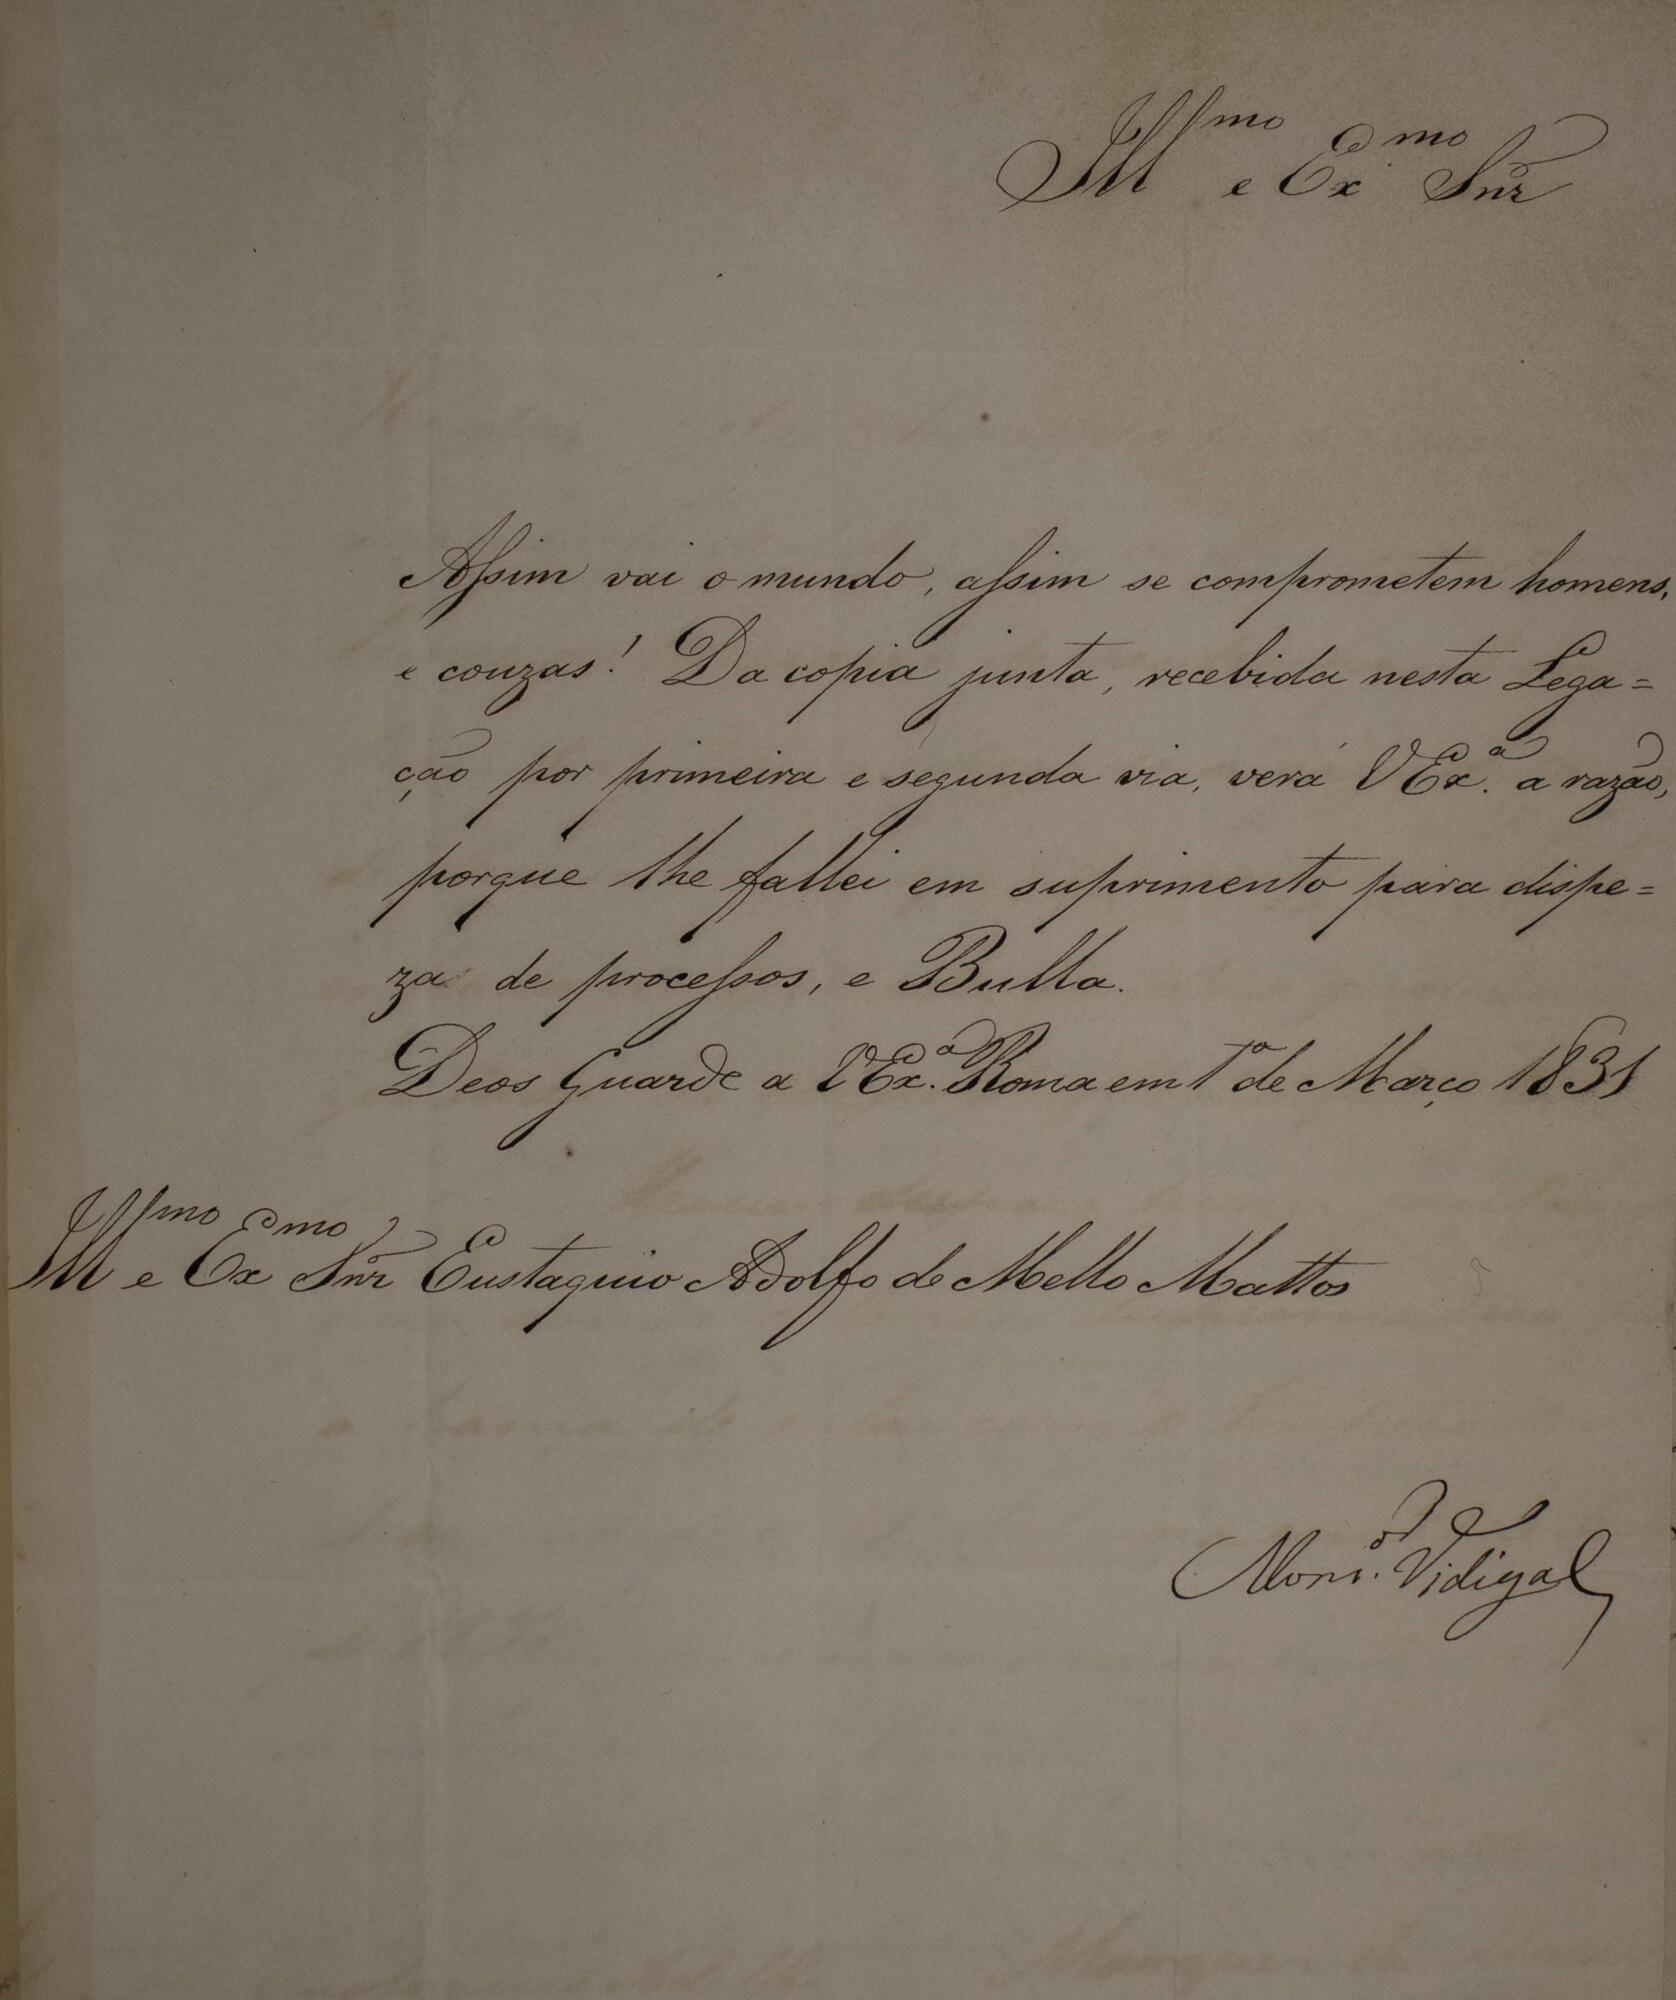 Ill.mo e Ex.mo Snr
Assim vai o mundo, assim se comprometem homens,
e couzas! Da copia junta, recebida nesta Lega=
ção por primeira e segunda via, verá VEx.ª a razão,
porque lhe fallei em suprimento para dispe=
za de processos, e Bulla.
Deos Guarde a VEx.ª Roma em 1º de Março 1831
Ill.mo e Ex.mo Snr Eustaquio Adolfo de Mello Mattos
Mons.or Vidigal